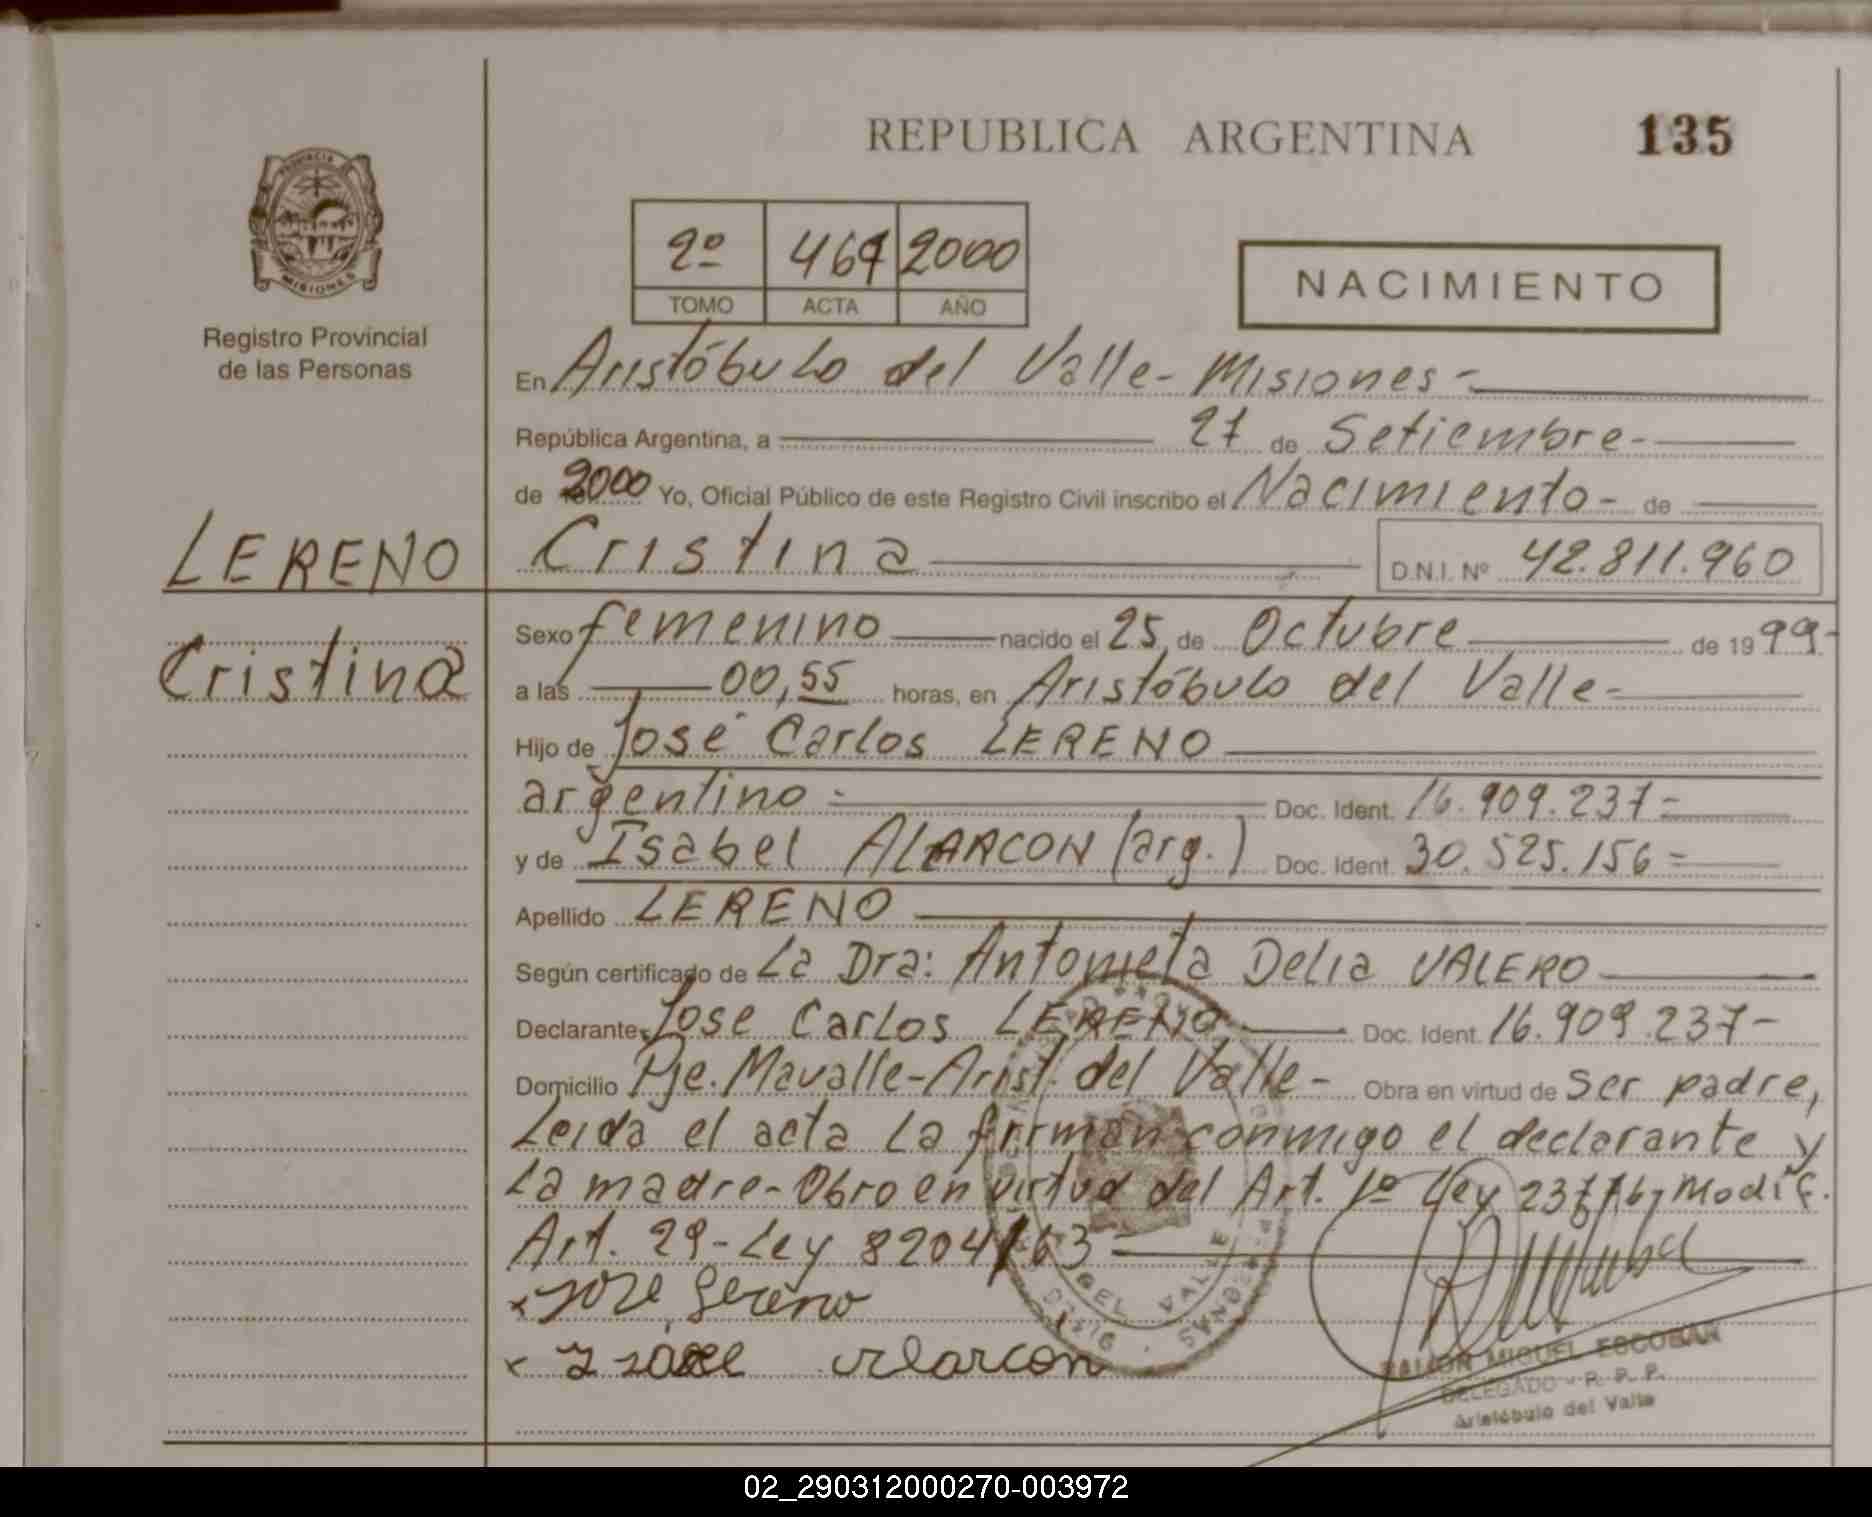 REPUBLICA ARGENTINA
135
PROVINCIA
MISIONES
Registro Provincial
de las Personas
2º 467 2000
TOMO ACTA AÑO
NACIMIENTO
En Aristóbulo del Valle- Misiones-
República Argentina, a 27 de Setiembre-
de 2000 Yo, Oficial Público de este Registro Civil inscribo el Nacimiento- de
LERENO
Cristina
Cristina D.N.I. Nº 42.811.960
Sexo femenino nacido el 25 de Octubre de 1999-
a las 00,55 horas, en Aristóbulo del Valle-
Hijo de José Carlos LERENO
argentino- Doc. Ident. 16.909.237=
y de Isabel ALARCON (arg.) Doc. Ident. 30.525.156=
Apellido LERENO
Según certificado de La Dra: Antonieta Delia VALERO
Declarante Jose Carlos LERENO Doc. Ident. 16.909.237-
Domicilio Pje. Mavalle-Arist. del Valle- Obra en virtud de ser padre,
Leida el acta la firman conmigo el declarante y
la madre-Obro en virtud del Art. 1º Ley Modif.
Art. 29-Ley 8204/63
x Jose Lereno
x Alarcon
RAMON MIGUEL ESCOBAR
DELEGADO - R. P. P.
Aristóbulo del Valle
DEL VALLE
02_290312000270-003972